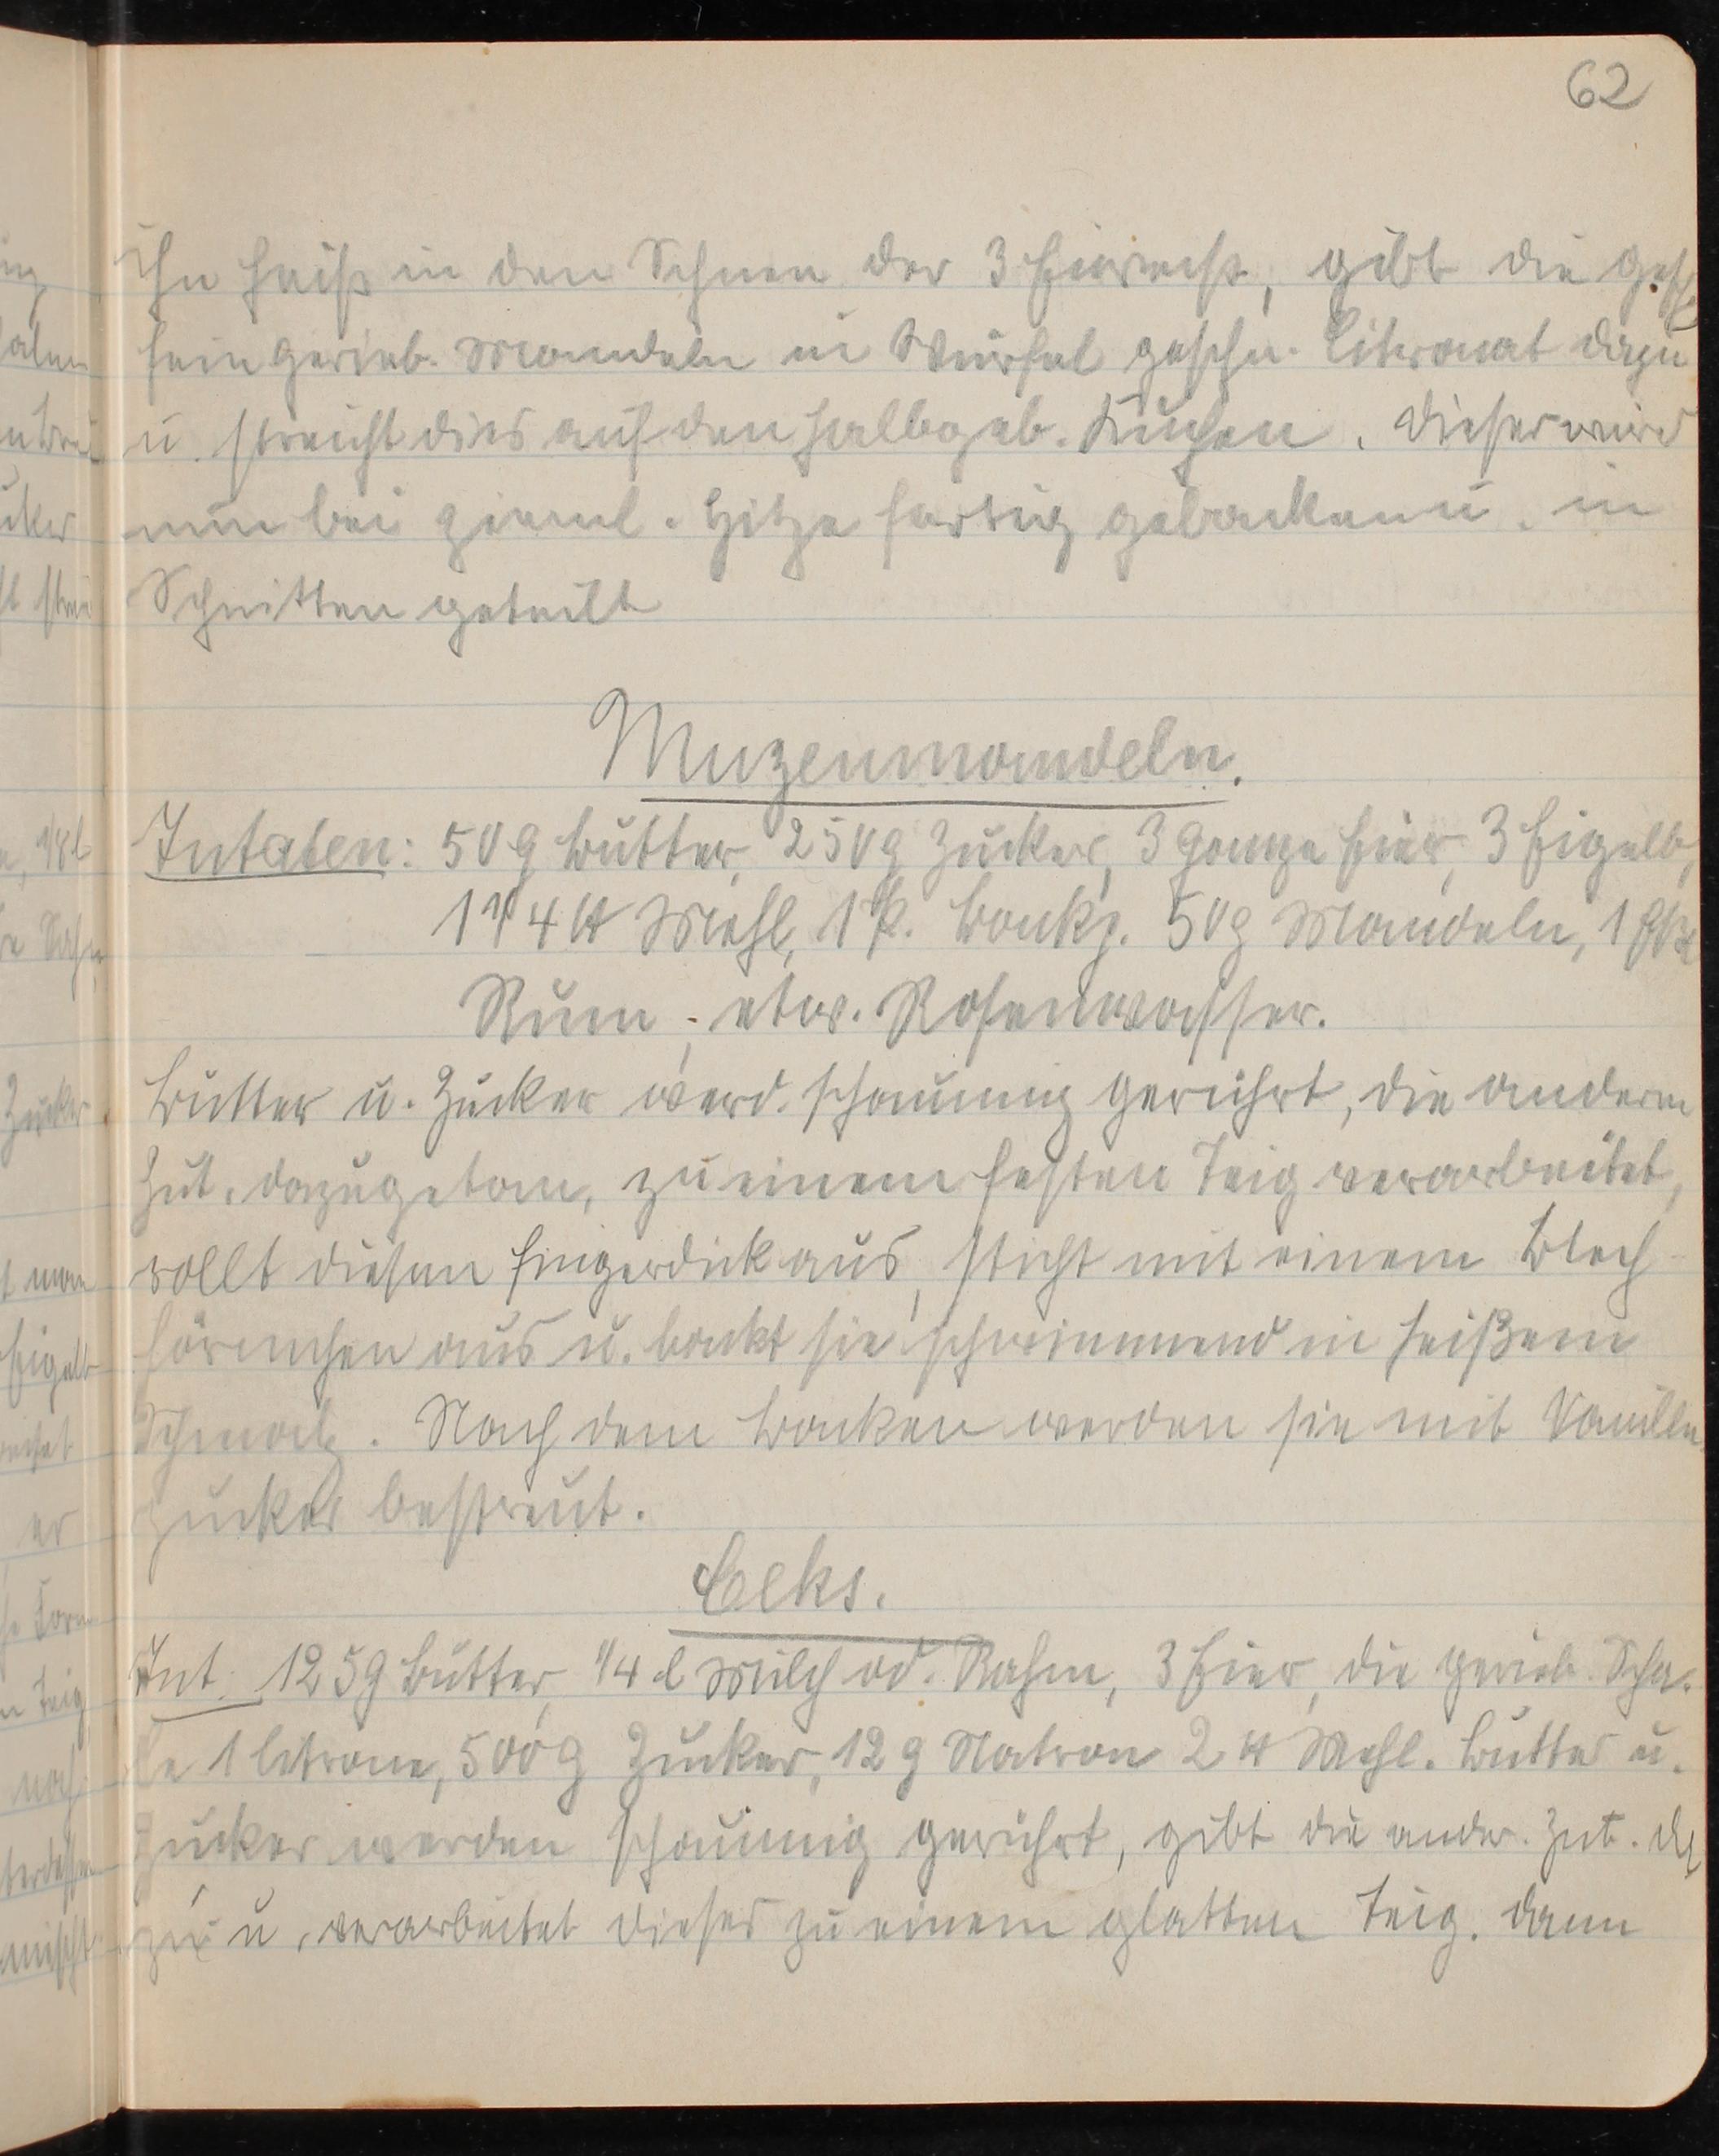 62
ihn heiß in den Schnee der 3 Eiweiß, gibt die gesch.
fein gerieb. Mandeln in Würfel geschn. Citronat dazu
u. streicht dies auf den halbgeb. Kuchen. Dieser wird
nun bei gieml. Hitze fertig gebacken u. in
Schnitten geteilt
Muzenmandeln.
Zutaten: 50 g Butter, 250 g Zucker, 3 ganze Eier, 3 Eigelb,
1 1/4 ℔ Mehl, 1 P. Backp. 50 g Mandeln, 1
Rum, etw. Rosenwasser.
Butter u. Zucker werd. schaumig gerührt, die andern
Zut. dazugetan, zu einem festen Teig verarbeitet,
rollt diesen fingerdick aus, sticht mit einem Blech-
förmchen aus u. backt sie schwimmend in heißem
Schmalz. Nach dem Backen werden sie mit Vanille
zucker bestreut.
Ceks.
Zut. 125 g Butter, 1/4 l Milch od. Rahm, 3 Eier, die gerieb. Scha-
le 1 Citrone, 500 g Zucker, 12 g Natron 2 ℔ Mehl. Butter u.
Zucker werden schaumig gerührt, gibt die ander. Zut. da
zu u. verarbeitet dieses zu einem glatten Teig. Dann